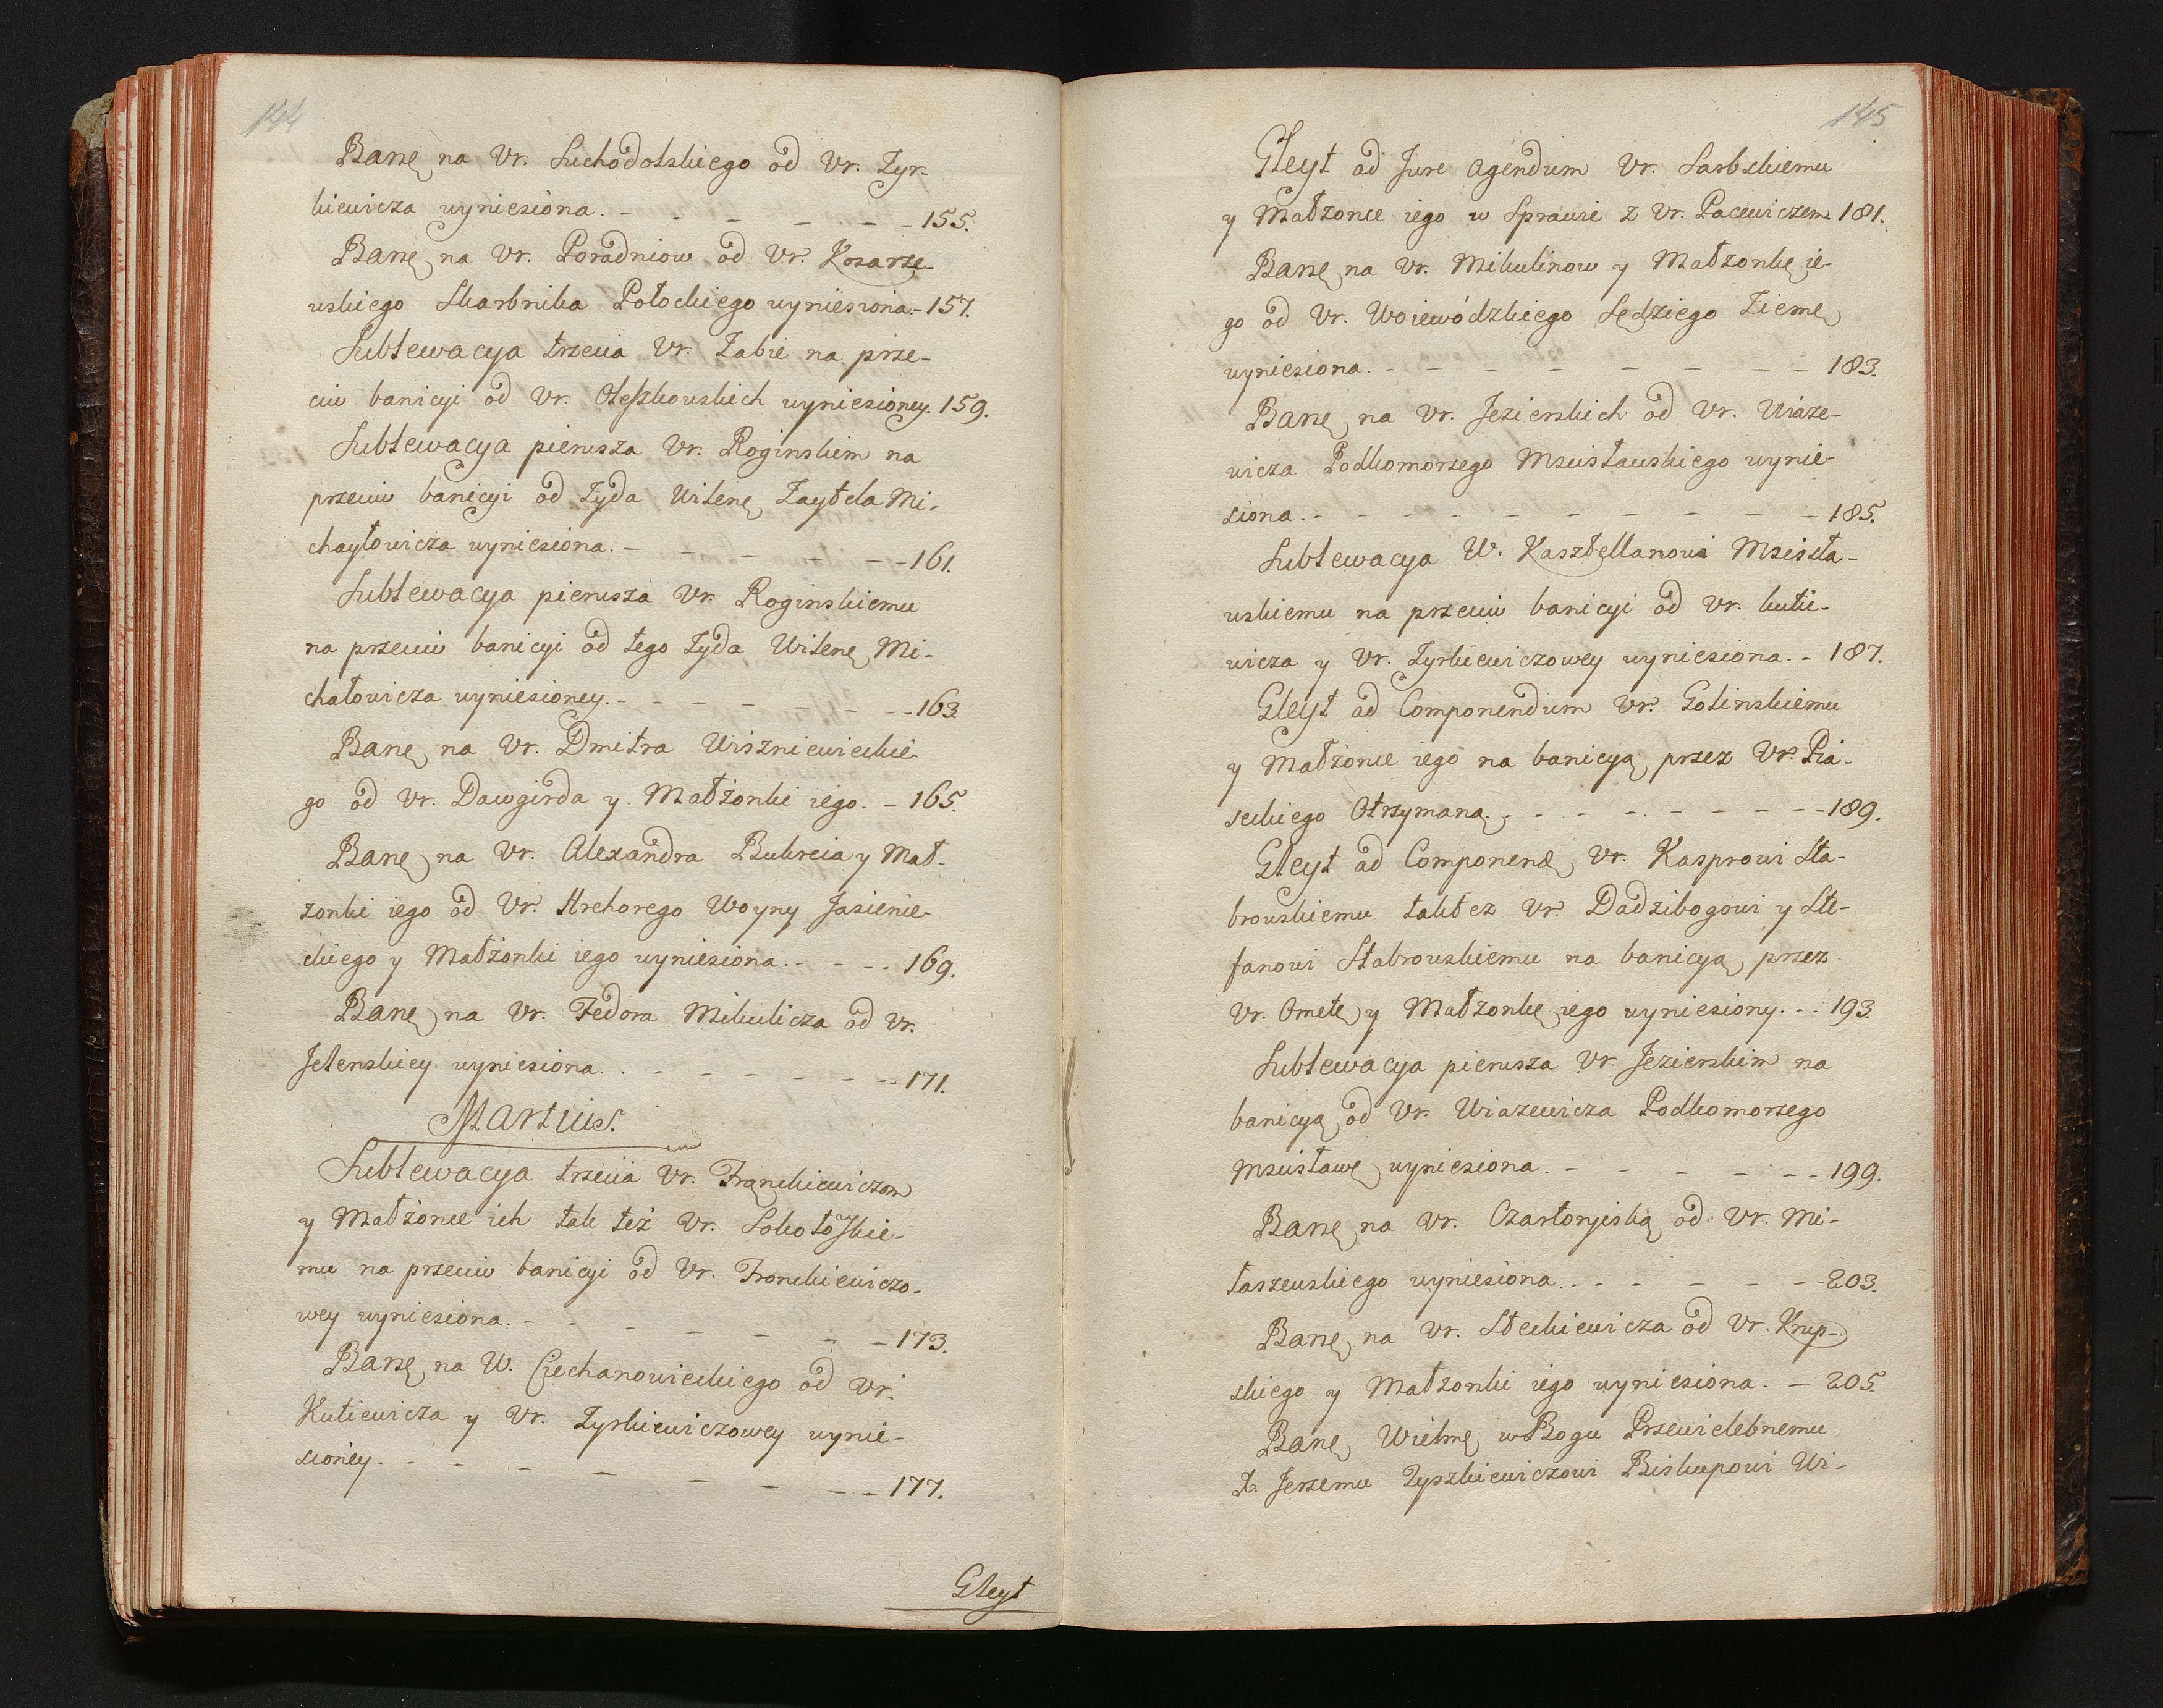 144
Banę na Ur. Suchodolskiego od Ur. Zyr-
kiewicza wyniesiona. - - - - - - 155.
Banę na Ur. Poradniow od Ur. Kosarze-
wskiego Skarbnika Połockiego wyniesiona. - 157.
Sublewacya trzecia Ur. Zabie na prze-
ciw banicyi od Ur. Oleszkowskich wyniesioney. 159.
Sublewacya pierwsza Ur. Roginskim na
przeciw banicyi od Zyda Wilenę Zaytela Mi-
chayłowicza wyniesiona. - - - - - - 161.
Sublewacya pierwsza Ur. Roginskiemu
na przeciw banicyi od tego Zyda Wilenę Mi-
chałowicza wyniesioney. - - - - - - 163
Banę na Ur. Dmitra Wiszniewieckie-
go od Ur. Dawgirda y Małżonki iego. - 165.
Banę na Ur. Alexandra Bukreia y Mał-
zonki iego od Ur. Hrehorego Woyny Jasienie-
ckiego y Małżonki iego wyniesiona. - - - - 169.
Banę na Ur. Fedora Mikulicza od Ur.
Jelenskiey wyniesiona. . - - - - - - 171.
Martius.
Sublewacya trzecia Ur. Franckiewiczom
y Małżonce ich tak też Ur. Sokołoskie-
mu na przeciw banicyi od Ur. Fronckiewiczo-
wey wyniesiona. - - - - - - - 173.
Banę na W. Ciechanowieckiego od Ur.
Kuliewicza y Ur. Zyrkiewiczowey wynie-
sioney. - - - - - - - - 177.
Gleyt
145
Gleyt ad Jure agendum Ur. Sarbskiemu
y Małzonce iego w Sprawie z Ur. Pacewiczem. 181.
Banę na Ur. Mikulinow y Małzonkę ie-
go od Ur. Woiewódzkiego Sędziego Ziemę
wyniesiona. - - - - - - - - 183.
Banę na Ur. Jezierskich od Ur. Wiaze-
wicza Podkomorzego Mscisławskiego wynie-
siona. - - - - - - - - - 185.
Sublewacya W. Kasztellanowi Mscisła-
wskiemu na przeciw banicyi od Ur. kulie-
wicza y Ur. Zyrkiewiczowey wyniesiona. - 187.
Gleyt ad Componendum Ur. Golinskiemu
y Małżonce iego na banicyą przez Ur. Pia-
seckiego Otrzymaną. - - - - - - - 189.
Gleyt ad Componend Ur. Kasprowi Sta-
browskiemu taktez Ur. Dadzibogowi y Ste-
fanowi Stabrowskiemu na banicyą przez
Ur. Ometę y Małzonkę iego wyniesiony. - - 193.
Sublewacya pierwsza Ur. Jezierskim na
banicyą od Ur. Wiazewicza Podkomorzego
Mscisławę wyniesiona. - - - - - - 199.
Banę na Ur. Czartoryiską od Ur. Mi-
taszewskiego wyniesiona. . - - - - - - 203.
Banę na Ur. Steckiewicza od Ur. Krup-
skiego y Małzonki iego wyniesiona. - 205.
Banę Wielmę w Bogu Przewielebnemu
X. Jerzemu Tyszkiewiczowi Biskupowi Wi-